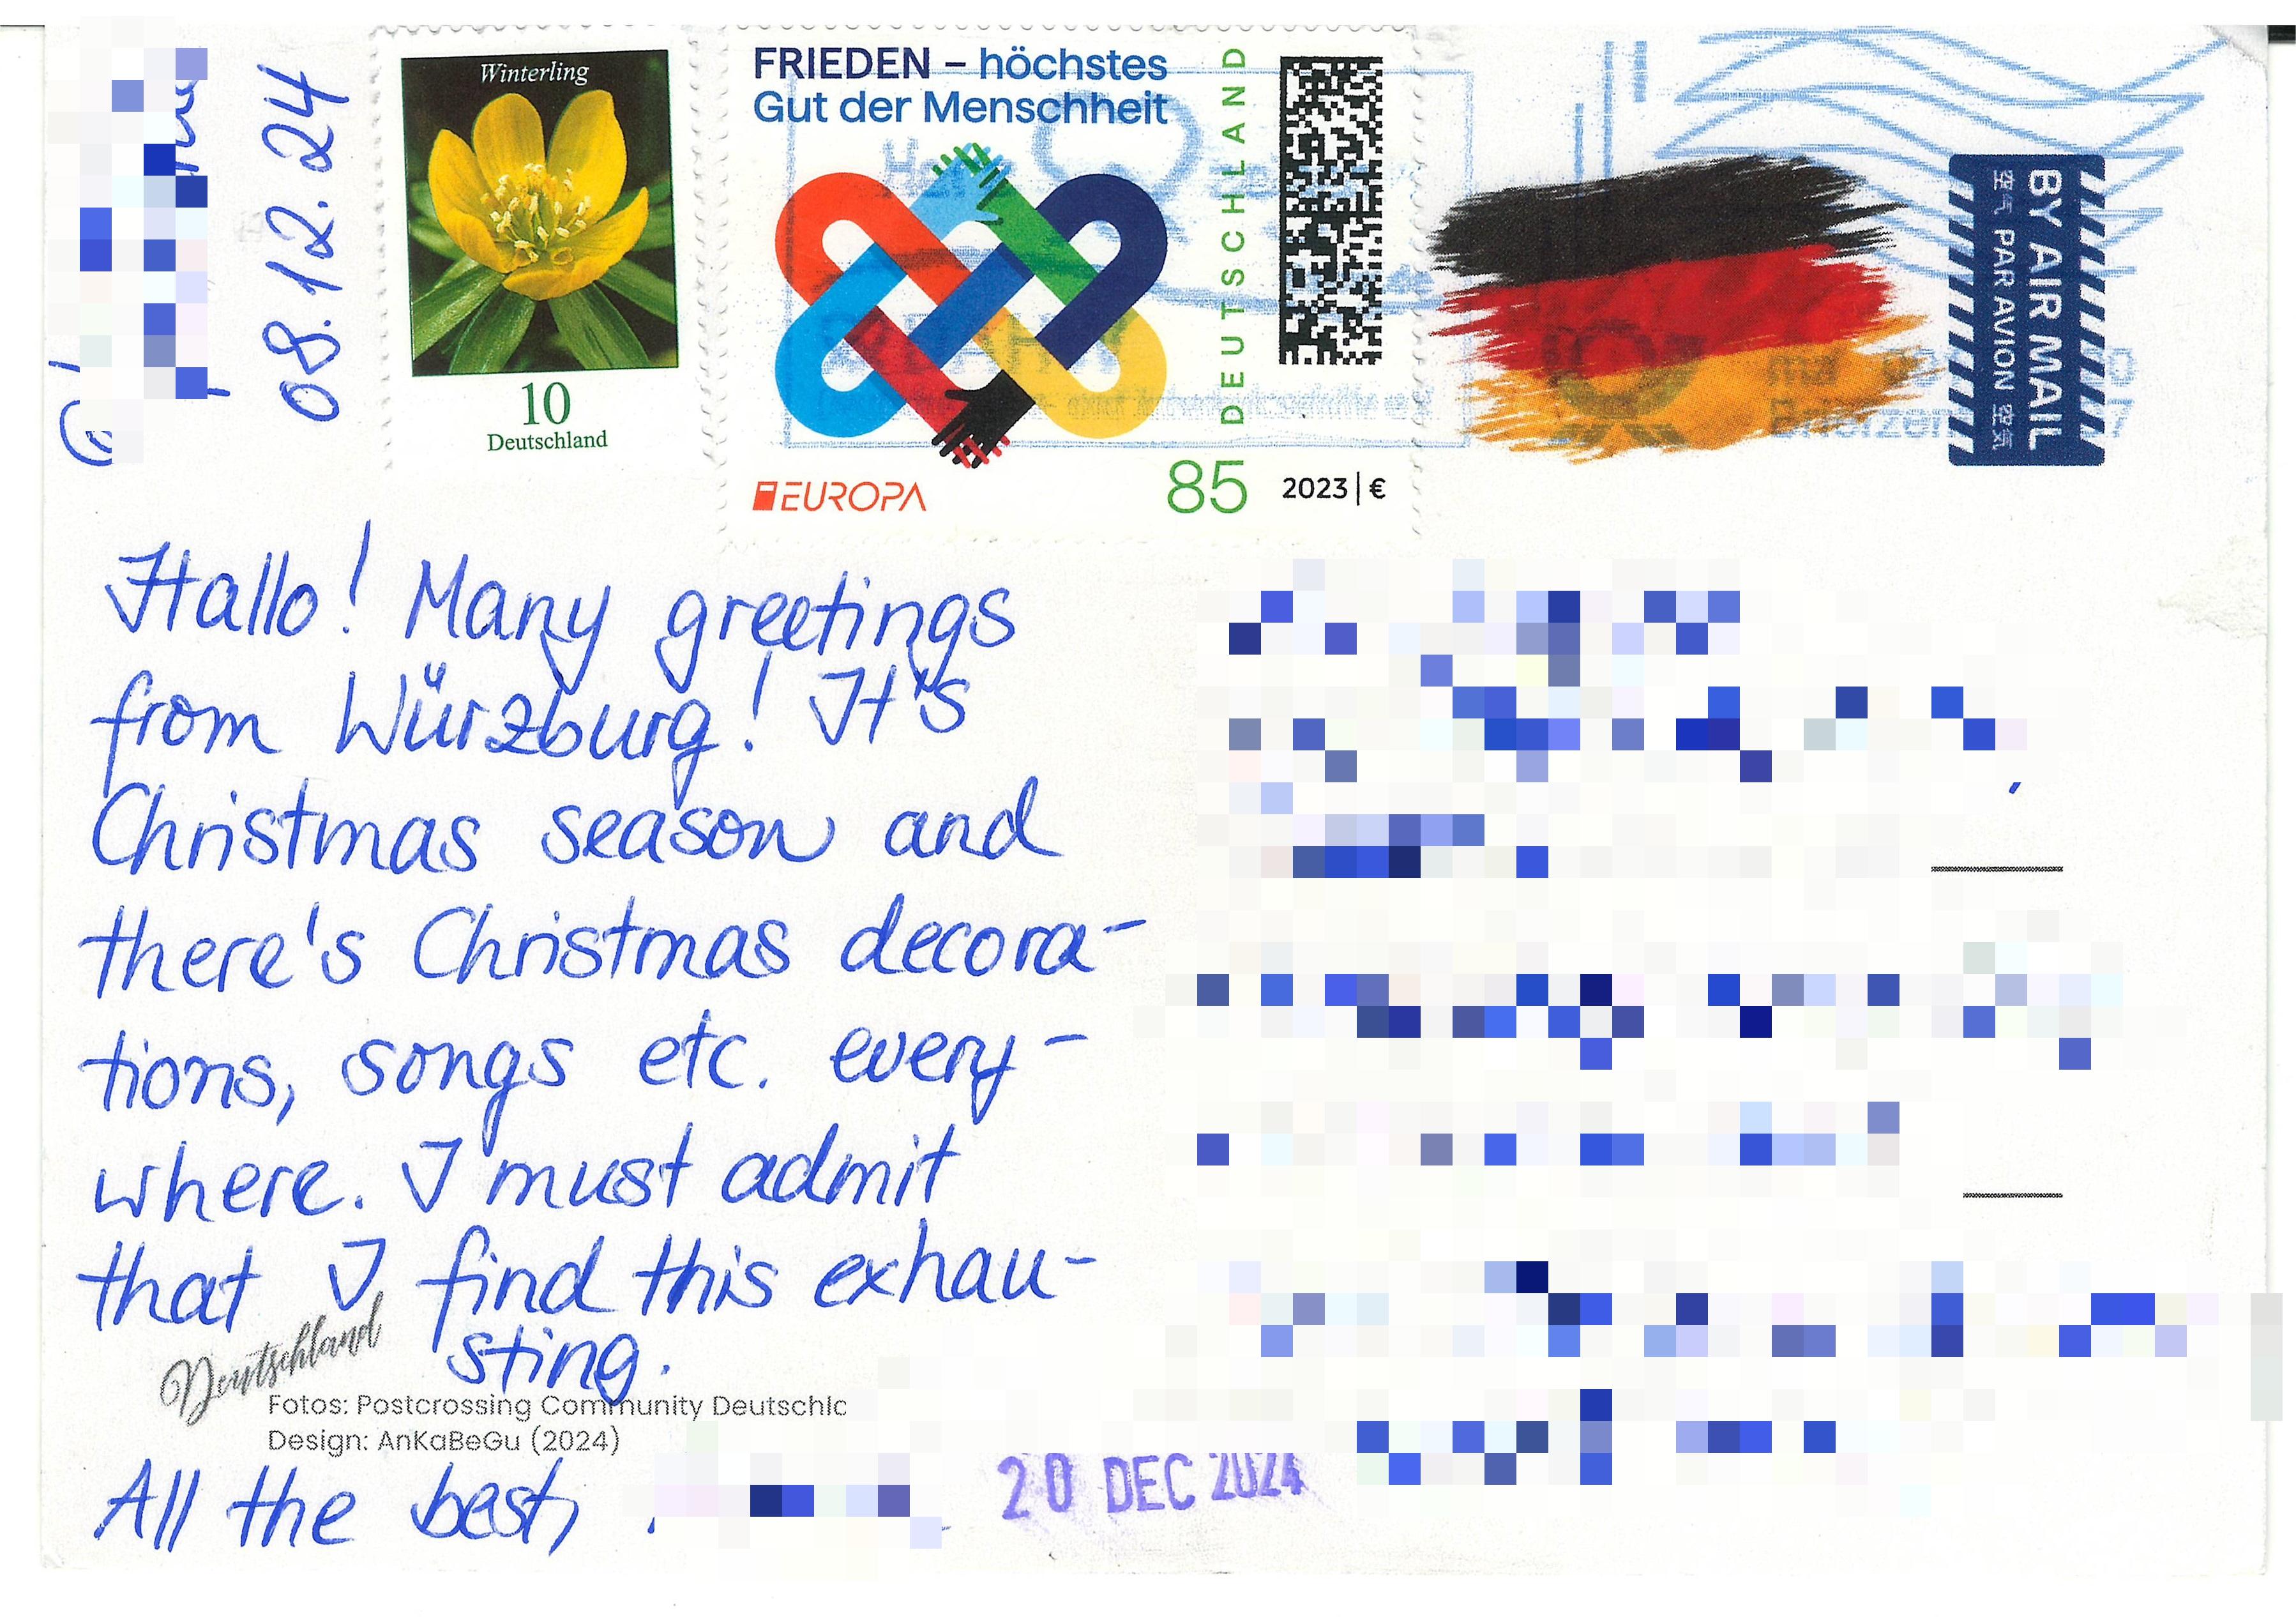 08.12.24
Winterling
10
Deutschland
FRIEDEN – höchstes
Gut der Menschheit
DEUTSCHLAND
EUROPA
85 2023 | €
BY AIR MAIL
PAR AVION
Hallo! Many greetings
from Würzburg! It's
Christmas season and
there's Christmas decora-
tions, songs etc. every-
where. I must admit
that I find this exhau-
sting.
Deutschland
Fotos: Postcrossing Community
Design: AnKaBeGu (2024)
All the best,
20 DEC 2024